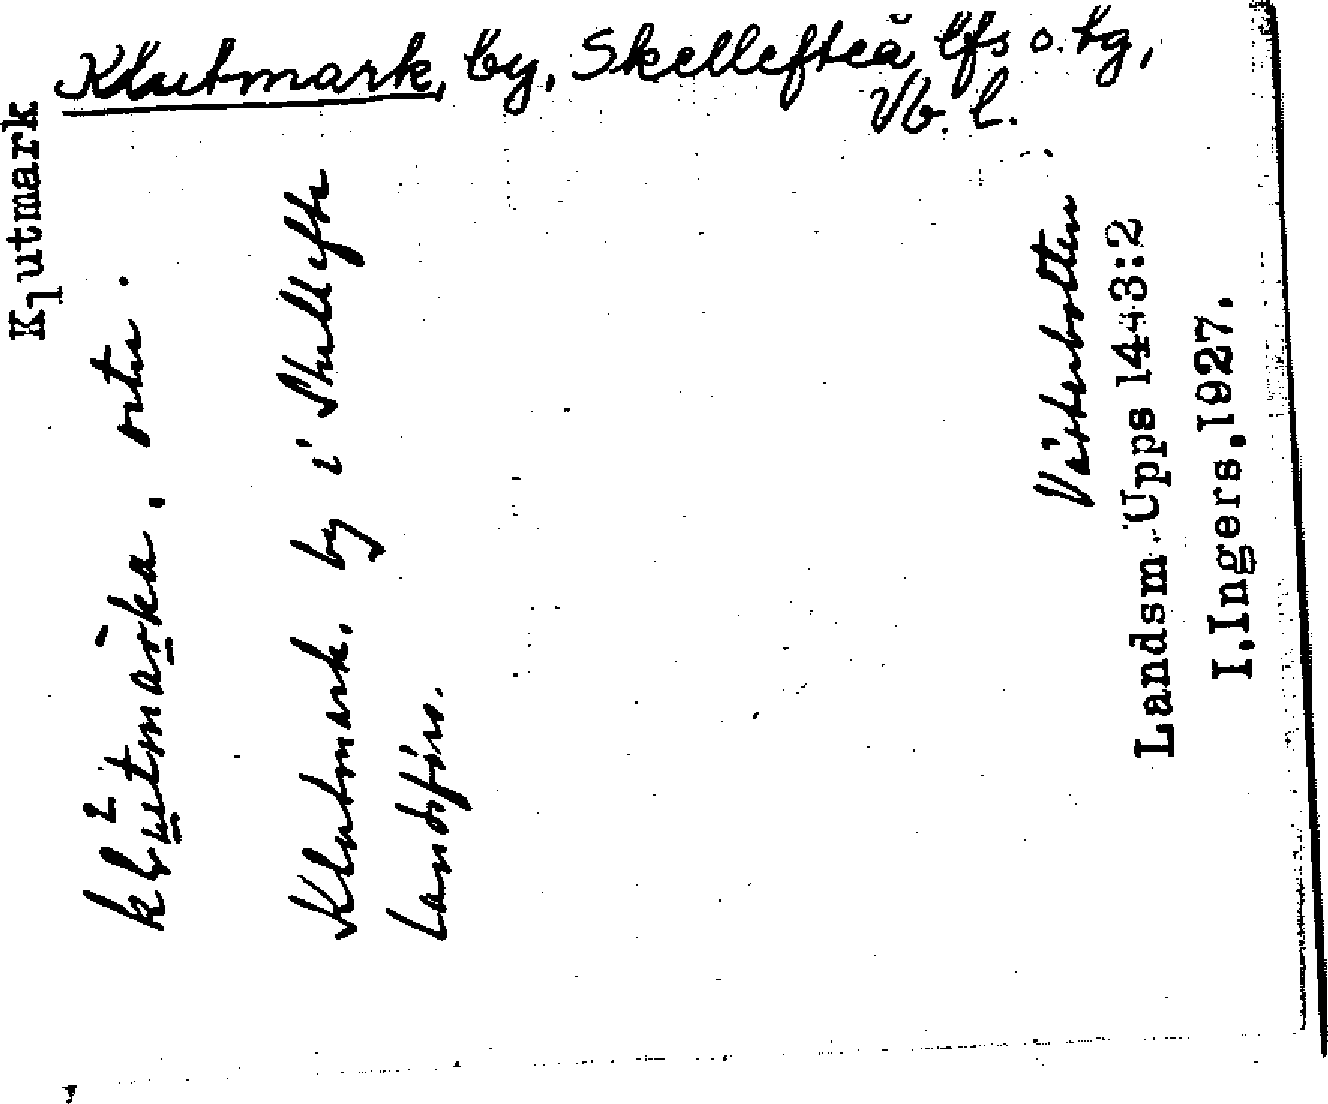 Klutmark, by, Skellefteå lfs o. tg,
Vb. l.
Klutmark
klu̲tmar̲ka, ortn.
Klutmark, by i Skellefte
landsförs.
Västerbotten
Landsm Upps 1443:2
I.Ingers,1927.